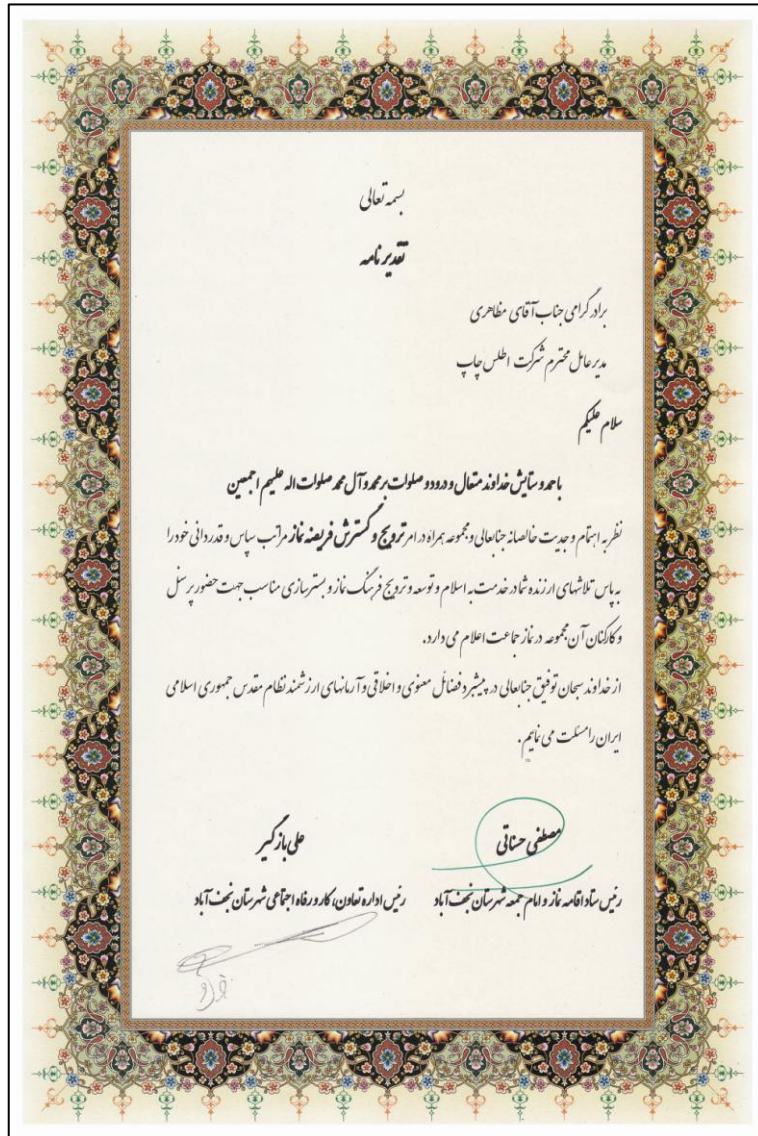 بسمه تعالی
تقدیر نامه
برادر گرامی جناب آقای مظاهری
مدیر عامل محترم شرکت اطلس چاپ
سلام علیکم
با حمد و ستایش خداوند متعال و درود و صلوات بر محمد و آل محمد صلوات اله علیهم اجمعین
نظر به اهتمام و جدیت خالصانه جنابعالی و مجموعه همراه در امر ترویج و گسترش فریضه نماز مراتب سپاس و قدردانی خود را
به پاس تلاشهای ارزنده شما در خدمت به اسلام و توسعه و ترویج فرهنگ نماز و بسترسازی مناسب جهت حضور پرسنل
و کارکنان آن مجموعه در نماز جماعت اعلام می دارد.
از خداوند سبحان توفیق جنابعالی در پیشبرد فضائل معنوی و اخلاقی و آرمانهای ارزشمند نظام مقدس جمهوری اسلامی
ایران را مسئلت می نمایم.
مصطفی حسناتی
علی بازگیر
رئیس ستاد اقامه نماز و امام جمعه شهرستان نجف آباد
رئیس اداره تعاون، کار و رفاه اجتماعی شهرستان نجف آباد